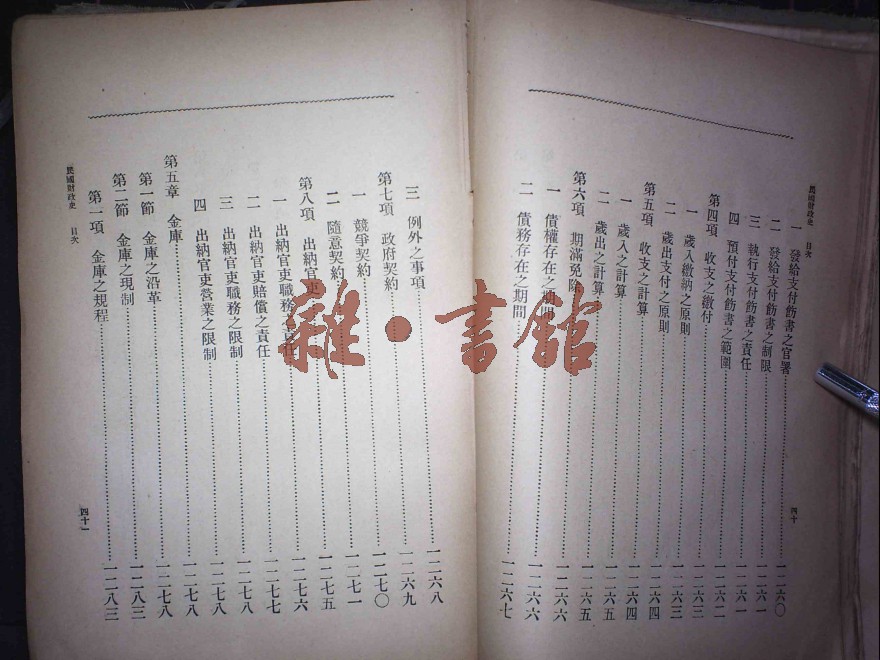 民國財政史 目次
一 發給支付飭書之官署……一二六〇
二 發給支付飭書之制限……一二六一
三 執行支付飭書之責任……一二六一
四 預付支付飭書之範圍……一二六二
第四項 收支之繳付……一二六三
一 歲入繳納之原則……一二六三
二 歲出支付之原則……一二六四
第五項 收支之計算……一二六四
一 歲入之計算……一二六五
二 歲出之計算……一二六五
第六項 期滿免除……一二六六
一 債權存在之期間……一二六六
二 債務存在之期間……一二六七
四十
三 例外之事項……一二六八
第七項 政府契約……一二六九
一 競爭契約……一二七〇
二 隨意契約……一二七一
第八項 出納官吏……一二七五
一 出納官吏職務之責任……一二七六
二 出納官吏賠償之責任……一二七七
三 出納官吏職務之限制……一二七八
四 出納官吏營業之限制……一二七八
第五章 金庫……一二七八
第一節 金庫之沿革……一二七八
第二節 金庫之現制……一二八三
第一項 金庫之規程……一二八三
民國財政史 目次
四十一
雜·書館